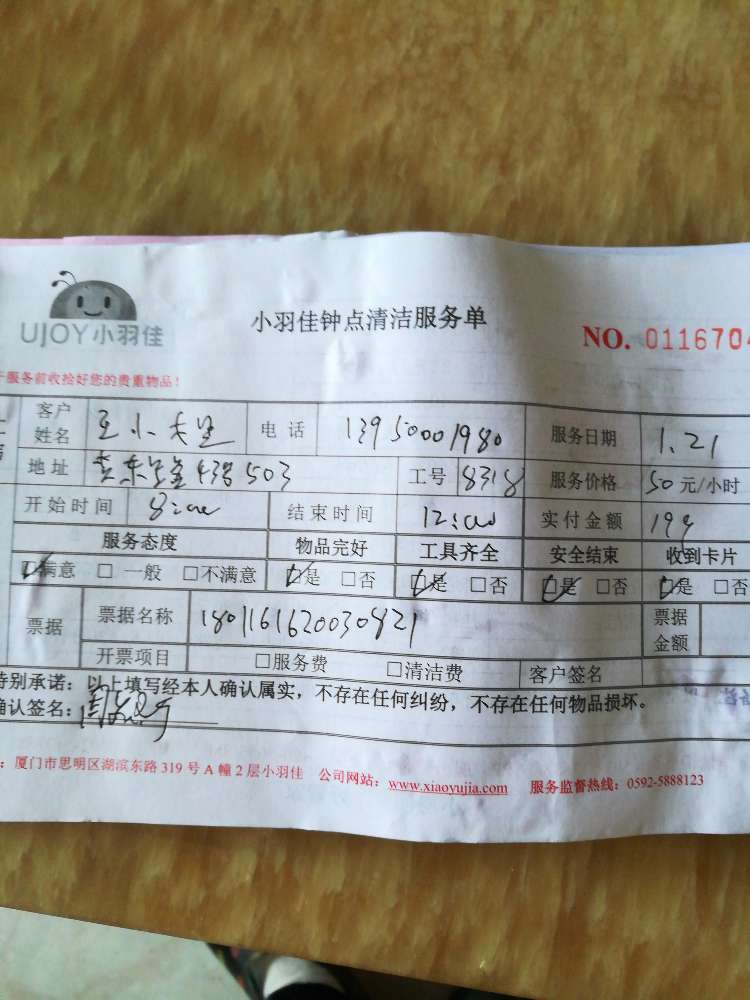 UJOY小羽佳
小羽佳钟点清洁服务单
NO. 0116704
服务前收拾好您的贵重物品!
客户姓名 王小 电话 13950001980 服务日期 1.21
地址 503 工号 8318 服务价格 50元/小时
开始时间 8:00 结束时间 12:00 实付金额 199
服务态度 物品完好 工具齐全 安全结束 收到卡片
☑满意 □一般 □不满意 ☑是 □否 ☑是 □否 ☑是 □否 ☑是 □否
票据 票据名称 180116162003042 1 票据金额
开票项目 □服务费 □清洁费 客户签名
特别承诺:以上填写经本人确认属实,不存在任何纠纷,不存在任何物品损坏。
确认签名:
:厦门市思明区湖滨东路319号A幢2层小羽佳 公司网站:www.xiaoyujia.com 服务监督热线:0592-5888123